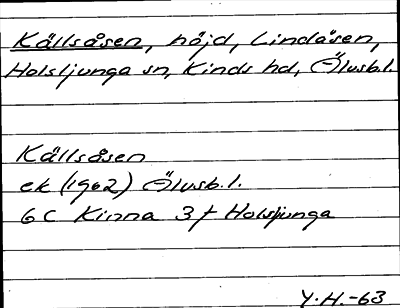 Källsåsen, höjd, Lindåsen,
Holsljunga sn, Kinds hd, Älvsb.l.
Källsåsen
ek (1962) Älvsb.l.
6C Kinna 3f Holsljunga
Y.H.-63